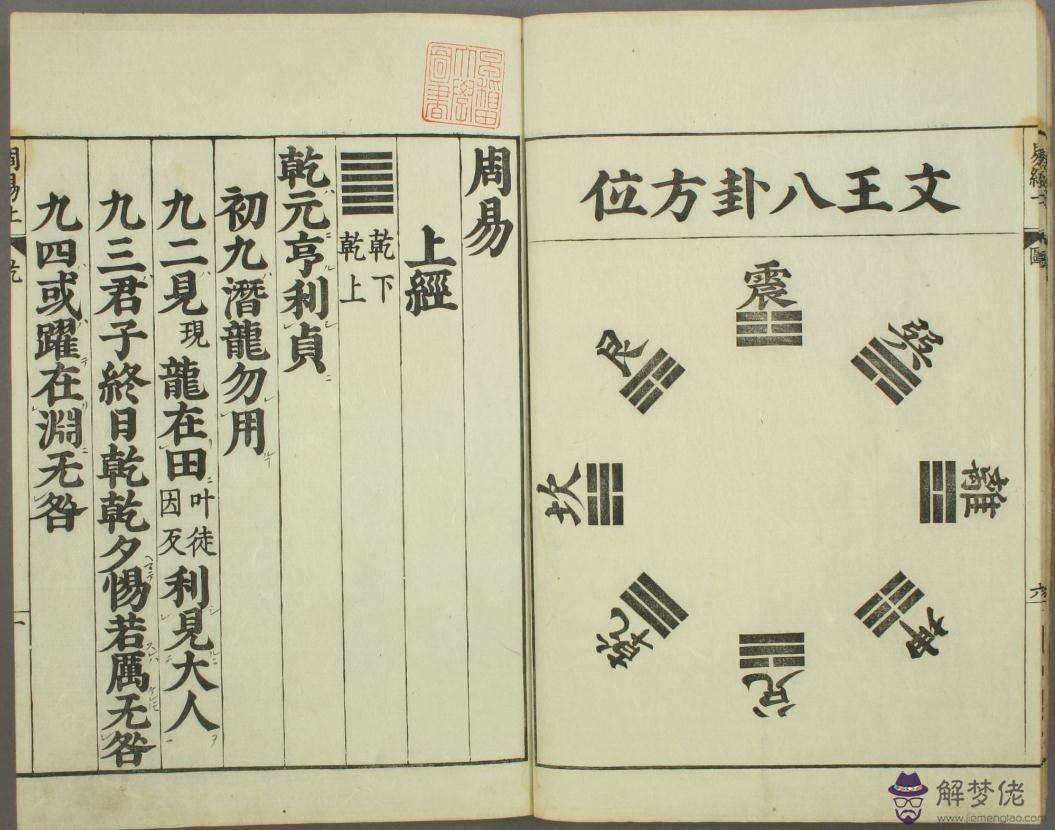 文王八卦方位
震
巽
離
坤
兌
乾
坎
艮
周易
上經
乾下
乾上
乾元亨利貞
初九潛龍勿用
九二見現龍在田叶徒因反利見大人
九三君子終日乾乾夕惕若厲无咎
九四或躍在淵无咎
周易上
乾
一
早稻田
大學
圖書
解梦佬
www.jiemenglao.com